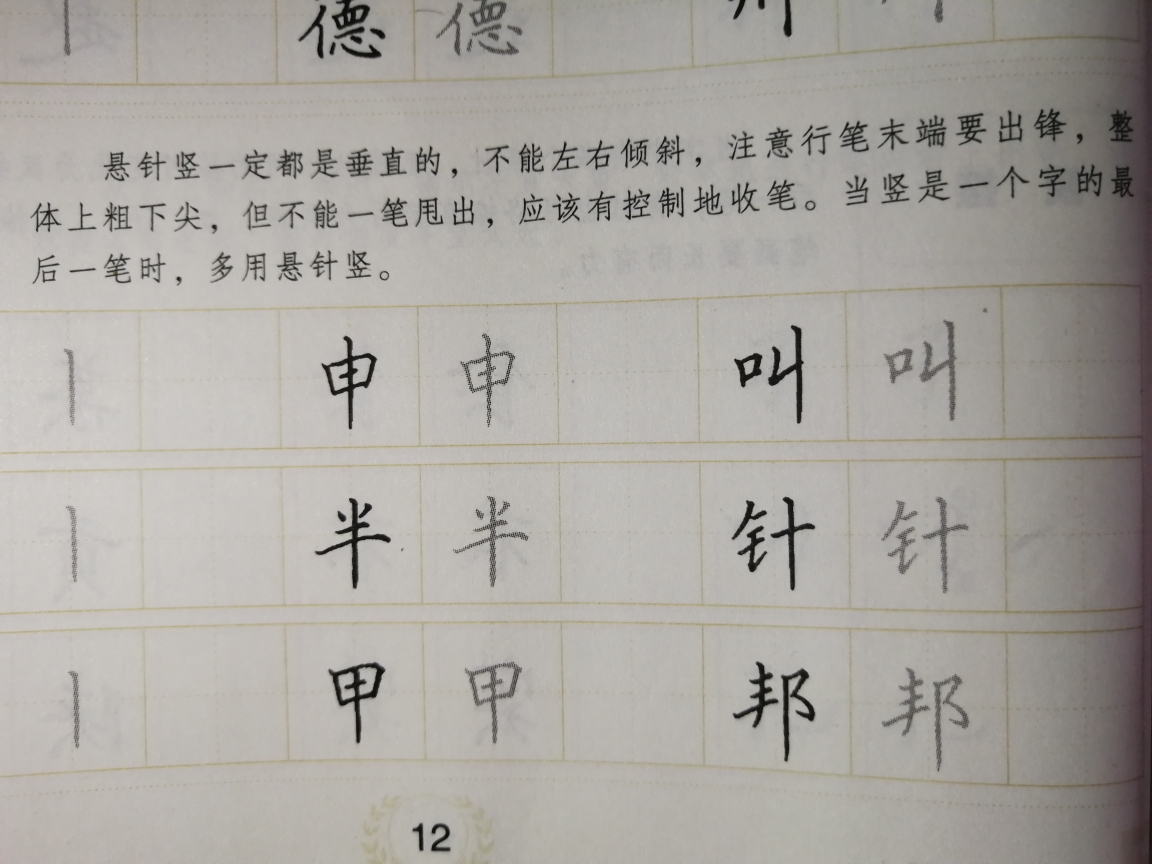 德 德
悬针竖一定都是垂直的，不能左右倾斜，注意行笔末端要出锋，整
体上粗下尖，但不能一笔甩出，应该有控制地收笔。当竖是一个字的最
后一笔时，多用悬针竖。
丨 申 申 叫 叫
丨 半 半 针 针
丨 甲 甲 邦 邦
12